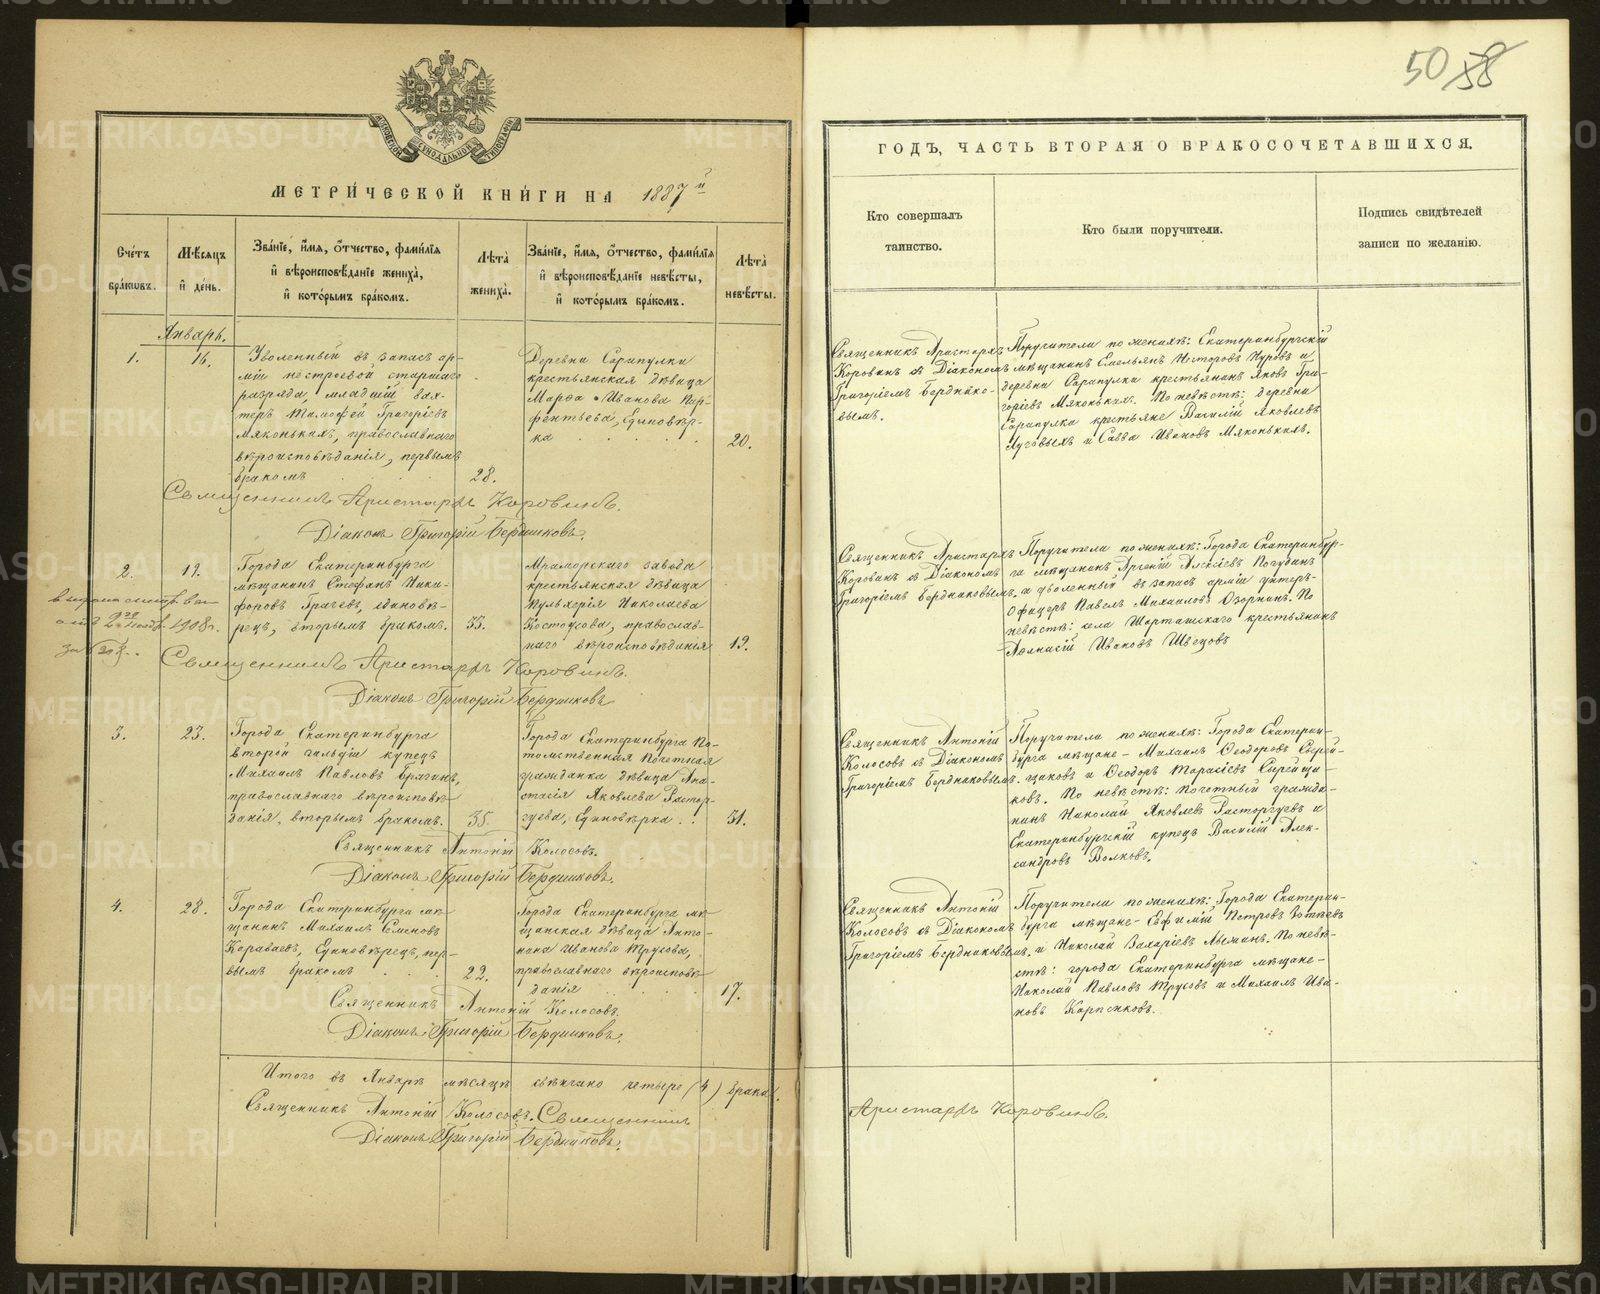 50 58
МОСКОВСКОЙ СѴНОДАЛЬНОЙ ТИПОГРАФІИ
МЕТРИ́ЧЕСКОЙ КНИ́ГИ НА 1887й
Сче́тъ бра́ковъ.
Мѣ́сяцъ и҆ де́нь.
Зва́нїе, и҆́мя, ѻ҆́тчество, фами́лїя
и҆ вѣроисповѣ́данїе жениха̀,
и҆ кото́рымъ бра́комъ.
Лѣ́та жениха̀.
Зва́нїе, и҆́мя, ѻ҆́тчество, фами́лїя
и҆ вѣроисповѣ́данїе невѣ́сты,
и҆ кото́рымъ бра́комъ.
Лѣ́та невѣ́сты.
Январь.
1.
14.
Уволенный въ запасъ ар-
міи нестроевой старшаго
разряда, младшій вах-
теръ Тимофей Григорьевъ
Мяконькихъ, православнаго
вѣроисповѣданія, первымъ
бракомъ
28.
Деревни Сарапулки
крестьянская дѣвица
Марѳа Иванова Пар-
фентьева, Единовѣр-
ка
20.
Священникъ Аристархъ Коровинъ.
Діаконъ Григорій Бердниковъ.
2.
19.
Города Екатеринбурга
мѣщанинъ Стефанъ Ники-
форовъ Грачевъ, единовѣ-
рецъ, вторымъ бракомъ.
33.
Мраморскаго завода
крестьянская дѣвица
Пульхерія Николаева
Костоусова, православ-
наго вѣроисповѣданія
19.
1908г.
Священникъ Аристархъ Коровинъ.
Діаконъ Григорій Бердниковъ
3.
23.
Города Екатеринбурга
второй гильдіи купецъ
Михаилъ Павловъ Брагинъ,
православнаго вѣроисповѣ-
данія, вторымъ бракомъ.
35.
Города Екатеринбурга По-
томственная Почетная
гражданка дѣвица Ана-
стасія Яковлева Растор-
гуева, Единовѣрка
31.
Священникъ Антоній Колосовъ.
Діаконъ Григорій Бердниковъ.
4.
28.
Города Екатеринбурга мѣ-
щанинъ Михаилъ Семеновъ
Караваевъ, Единовѣрецъ, пер-
вымъ бракомъ
22.
Города Екатеринбурга мѣ-
щанская дѣвица Анто-
нина Иванова Трусова,
православнаго вѣроисповѣ-
данія
17.
Священникъ Антоній Колосовъ.
Діаконъ Григорій Бердниковъ.
Итого въ Январѣ мѣсяцѣ свѣнчано четыре (4) брака.
Священникъ Антоній Колосовъ. Священникъ
Діаконъ Григорій Бердниковъ.
ГОДЪ, ЧАСТЬ ВТОРАЯ О БРАКОСОЧЕТАВШИХСЯ.
Кто совершалъ
таинство.
Кто были поручители.
Подпись свидѣтелей
записи по желанію.
Священникъ Аристархъ
Коровинъ съ Діакономъ
Григоріемъ Бердніко-
вымъ.
Поручители по женихѣ: Екатеринбургскій
мѣщанинъ Емельянъ Нуровъ и
деревни Сарапулки крестьянинъ Яковъ Гри-
горіевъ Мяконькихъ. По невѣстѣ: деревни
Сарапулка крестьяне Василій Яковлевъ
Луговыхъ и Савва Ивановъ Мяконькихъ.
Священникъ Аристархъ
Коровинъ съ Діакономъ
Григоріемъ Бердниковымъ.
Поручители по женихѣ: Города Екатеринбур-
га мѣщанинъ Алексіевъ Погудинъ
и уволенный въ запасъ арміи унтеръ-
Офицеръ Павелъ Михаиловъ Озорнинъ. По
невѣстѣ: села Шарташскаго крестьянинъ
Аѳанасій Ивановъ Швецовъ
Священникъ Антоній
Колосовъ съ Діакономъ
Григоріемъ Бердниковымъ.
Поручители по женихѣ: Города Екатерин-
бурга мѣщане- Михаилъ Ѳеодоровъ Сырей-
щиковъ и Ѳеодоръ Тарасіевъ Сырейщи-
ковъ. По невѣстѣ: Почетный гражда-
нинъ Николай Яковлевъ Расторгуевъ и
Екатеринбургскій купецъ Василій Алек-
сандровъ Волковъ.
Священникъ Антоній
Колосовъ съ Діакономъ
Григоріемъ Бердниковымъ.
Поручители по женихѣ: Города Екатерин-
бурга мѣщане- Ефимій Петровъ
и Николай Захаріевъ По невѣ-
стѣ: города Екатеринбурга мѣщане-
Николай Павловъ Трусовъ и Михаилъ Ива-
новъ Карпенковъ.
Аристархъ Коровинъ.
METRIKI.GASO-URAL.RU